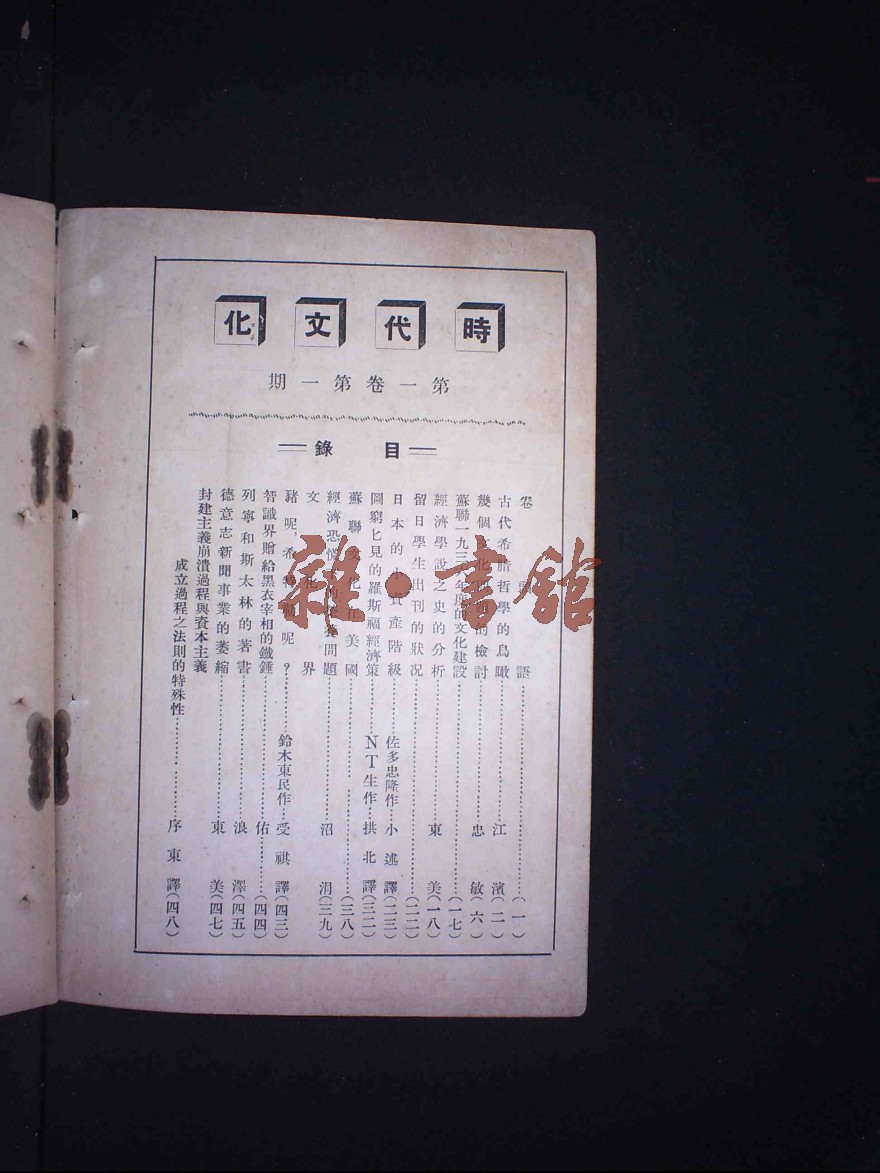 時代文化
第一卷第一期
目錄
卷頭語……(一)
古代希腊哲學的鳥瞰……江濱(二)
幾個文化問題的檢討……忠敏(六)
蘇聯一九三六年度的文化建設……(一七)
經濟學說之史的分析……東美(一八)
留日學生出刊的狀况……(二二)
日本的小資產階級……佐多忠隆作…小述譯(二三)
圖窮匕見的羅斯福經濟策……NT生作…拱北譯(三二)
蘇聯文化在美國……(三八)
經濟恐慌下的營養問題……沼涓(三九)
文化界
豬呢希特勒呢?……鈴木東民作…受祺譯(四三)
智識界贈給黑衣宰相的鐵錘……佑(四四)
列寧和斯太林的著書……浪澤(四五)
德意志新聞事業的萎縮……東美(四七)
封建主義崩潰過程與資本主義
成立過程之法則的特殊性……序東譯(四八)
雜·書館